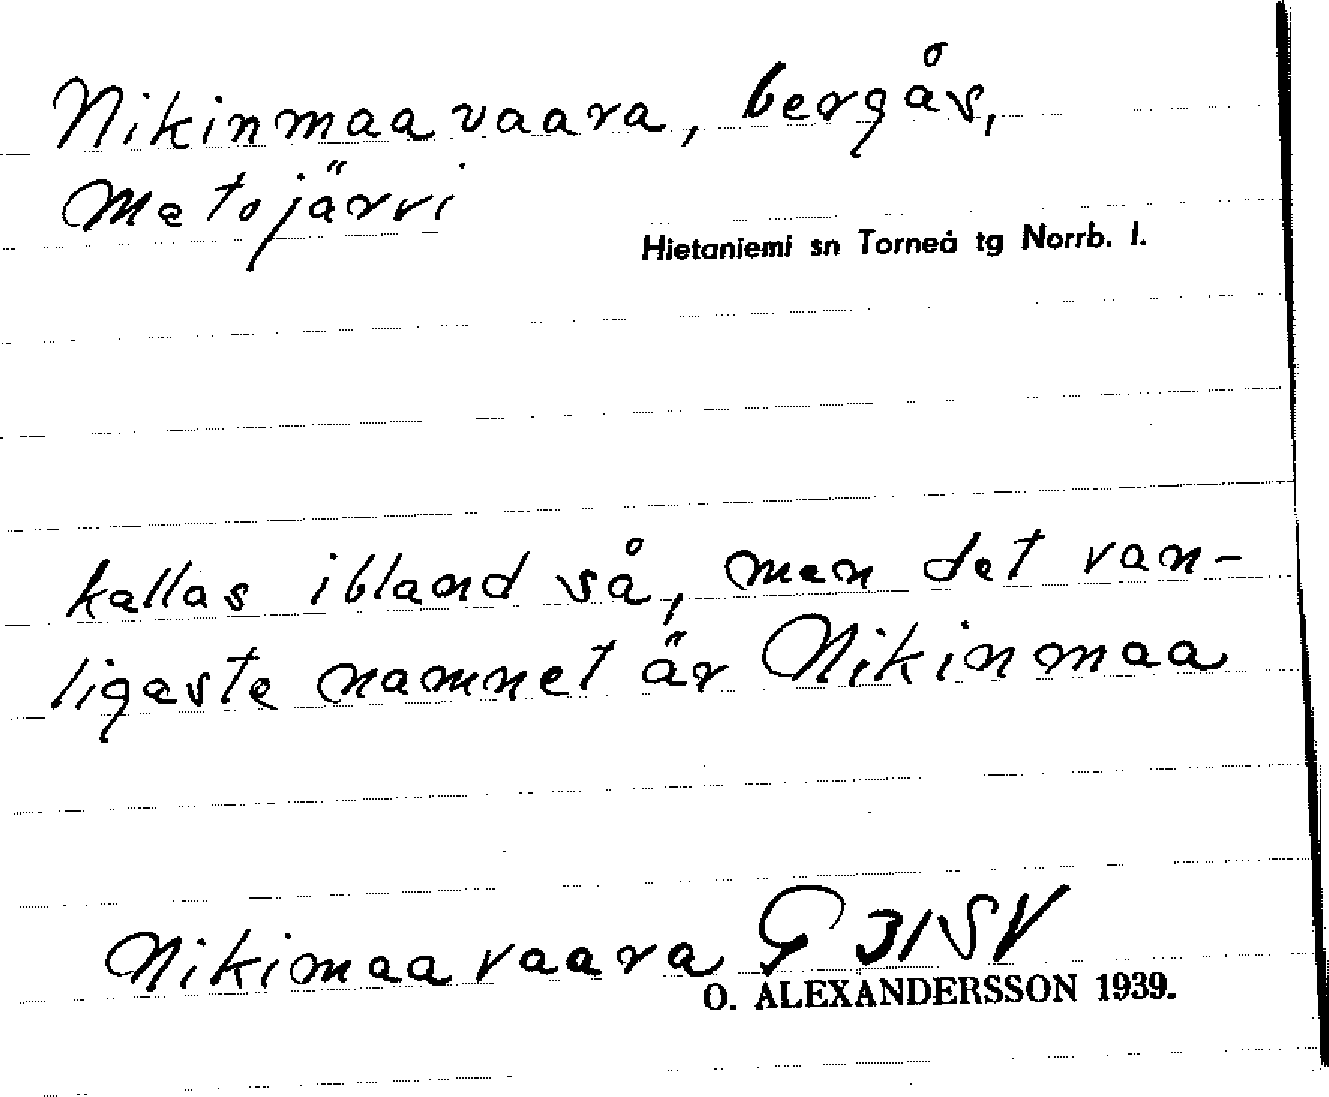 Nikinmaavaara, bergås,
Matojärvi
Hietaniemi sn Torneå tg Norrb. l.
kallas ibland så, men det van-
ligaste namnet är Nikinmaa
Nikimaavaara G 31 SV
O. ALEXANDERSSON 1939.